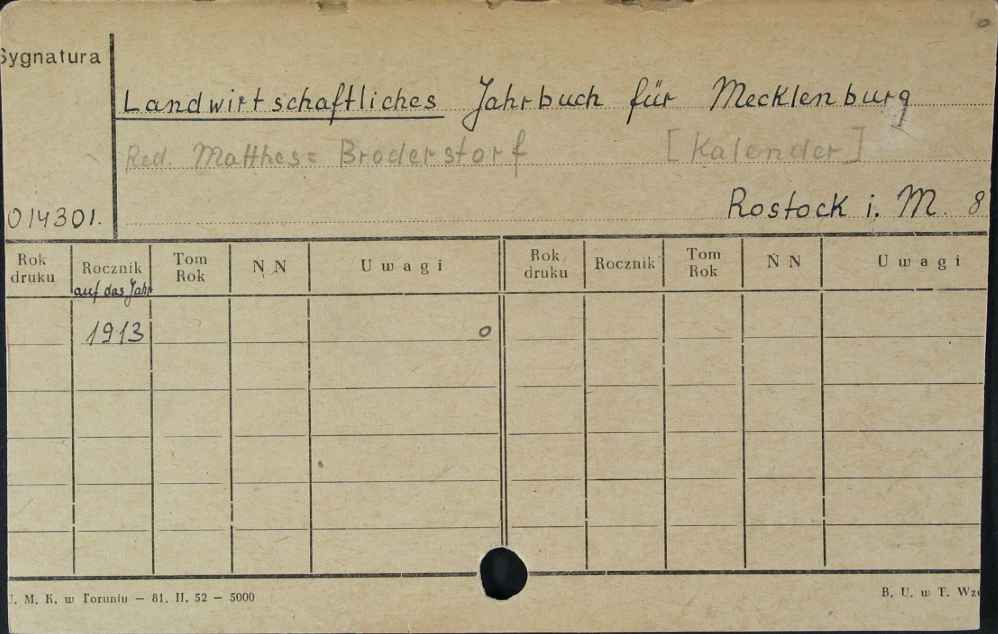 Sygnatura
Landwirtschaftliches Jahrbuch für Mecklenburg
Red. Matthes= Broderstorf [Kalender]
014301. Rostock i. M. 8
Rok druku Rocznik Tom Rok N N Uwagi Rok druku Rocznik Tom Rok N N Uwagi
auf das Jahr
1913 o
U. M. K. w Toruniu — 81. II. 52 — 5000 B. U. w T. Wz